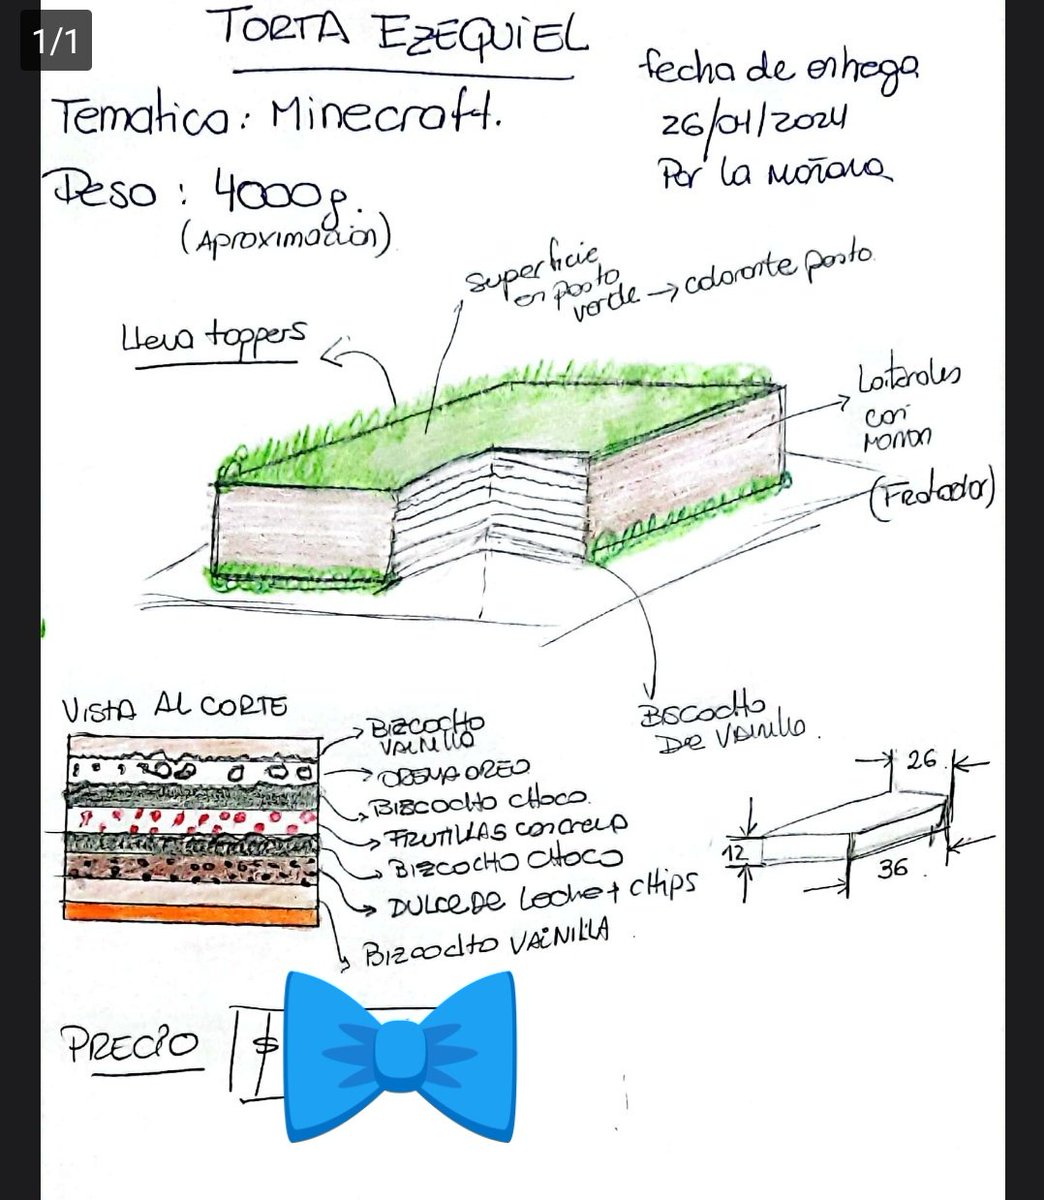 1/1
TORTA EZEQUIEL
Tematica: Minecraft.
Peso: 4000g.
(Aproximación)
fecha de entrega
26/04/2024
Por la mañana
Superficie
en pasto
verde → colorante pasto
Lleva toppers
Laterales
con
marron
BISCOCHO
DE VAINILLA.
VISTA AL CORTE
BIZCOCHO
VAINILLA
CREMA OREO
BIZCOCHO CHOCO.
FRUTILLAS CON CREMA
BIZCOCHO CHOCO
DULCE DE Leche + CHIPS
BIZCOCHO VAINILLA
26
12
36
PRECIO
$